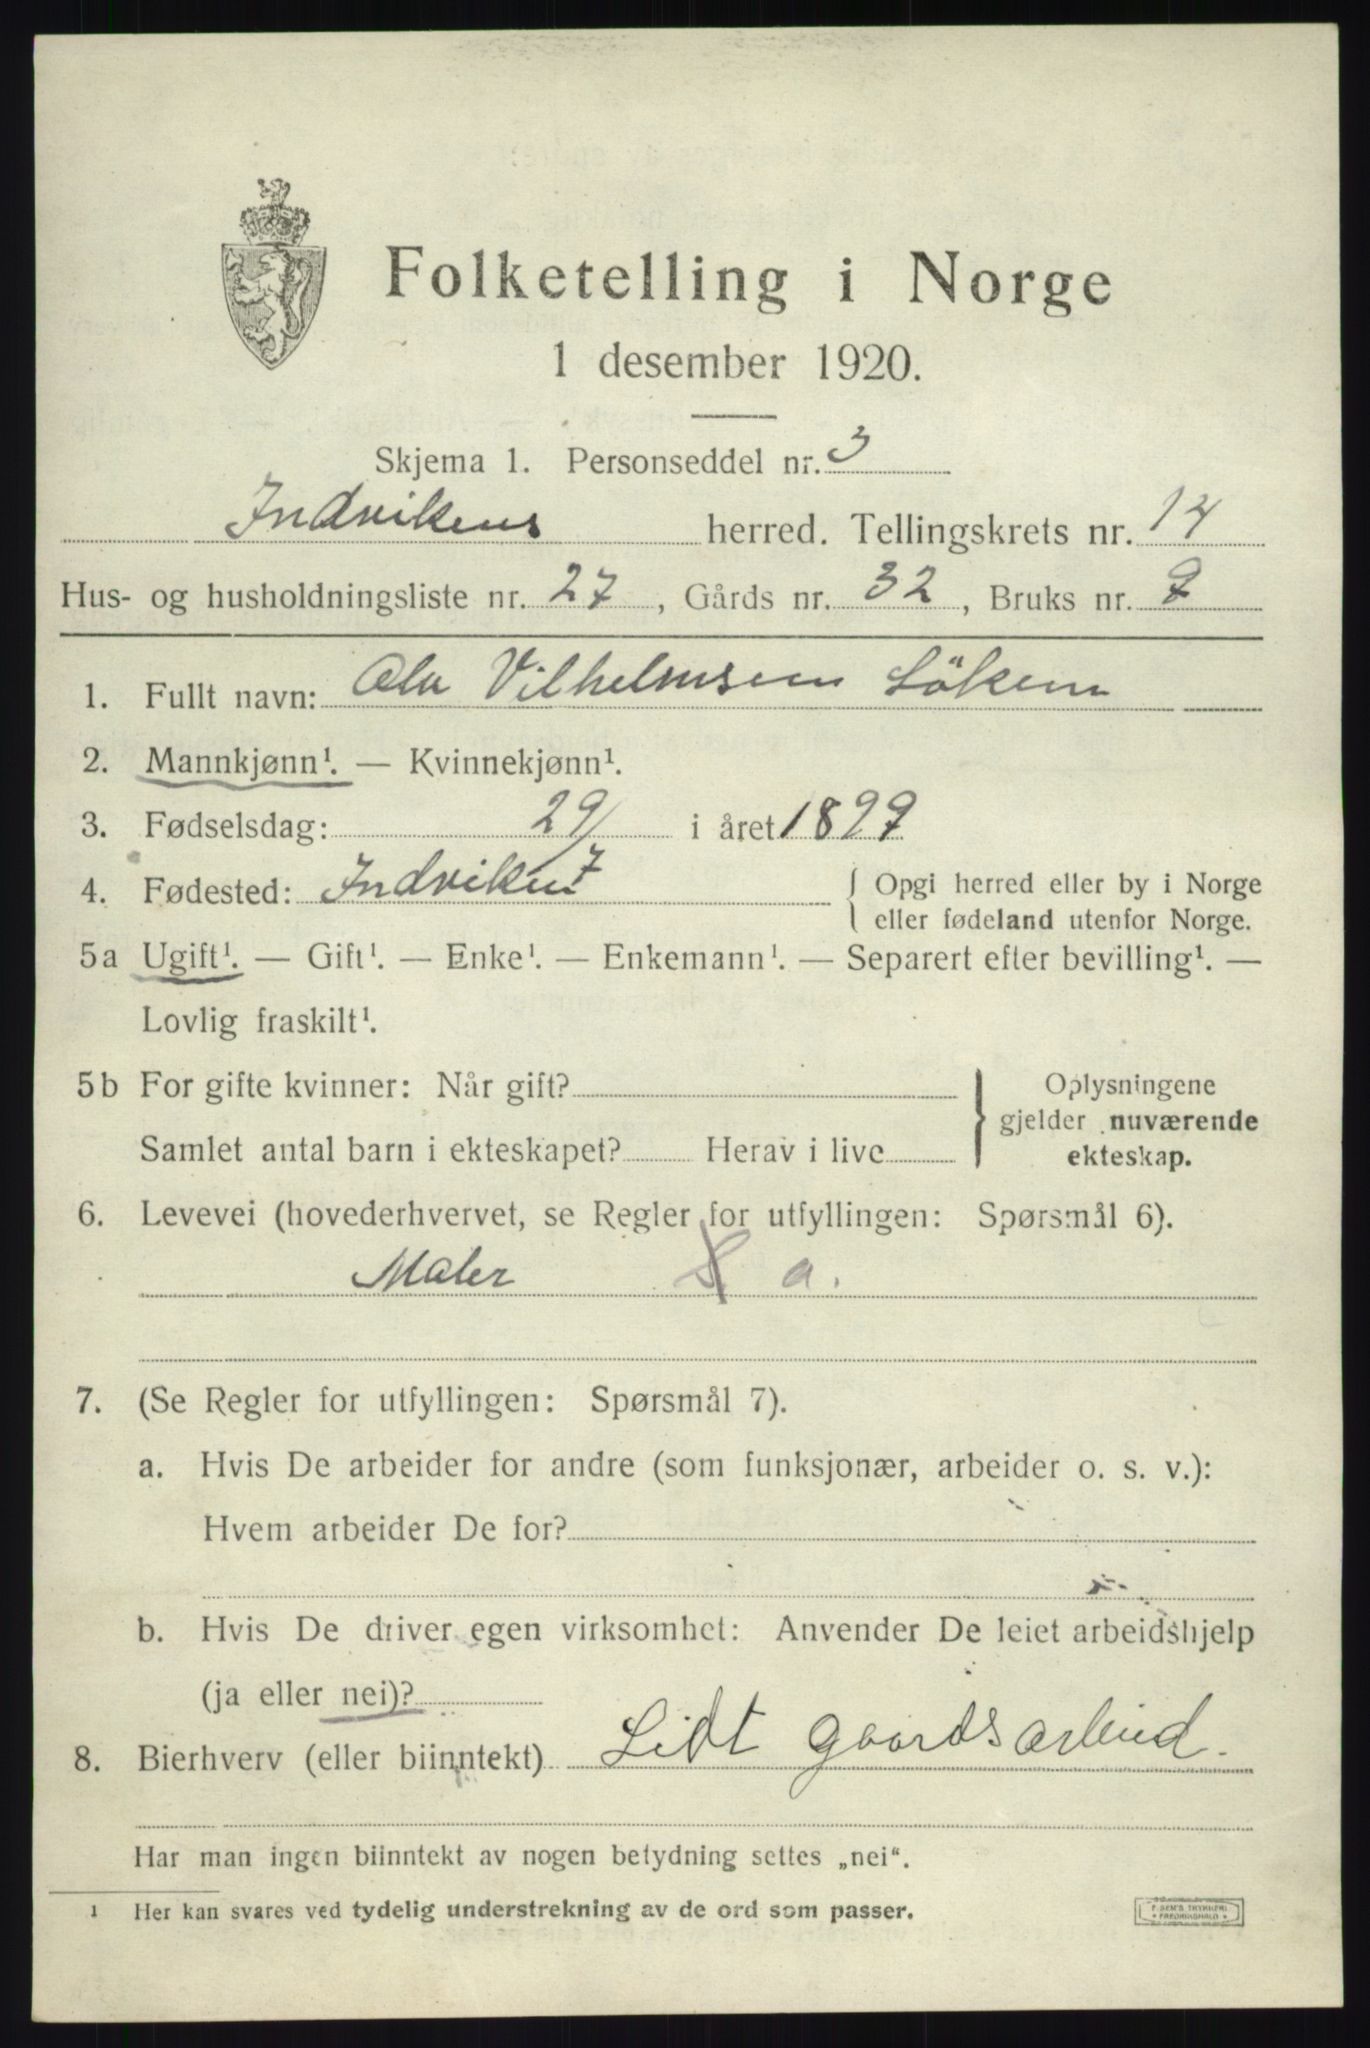 Folketelling i Norge
1 desember 1920.
Skjema 1. Personseddel nr. 3
Indvikens herred. Tellingskrets nr. 14
Hus- og husholdningsliste nr. 27, Gårds nr. 32, Bruks nr.
1. Fullt navn: Vilhelmsen Löken
2. Mannkjønn¹. — Kvinnekjønn¹.
3. Fødselsdag: 29/7 i året 1897
4. Fødested: Indviken { Opgi herred eller by i Norge
eller fødeland utenfor Norge.
5a Ugift¹. — Gift¹. — Enke¹. — Enkemann¹. — Separert efter bevilling¹. —
Lovlig fraskilt¹.
5b For gifte kvinner: Når gift? } Oplysningene
gjelder nuværende
Samlet antal barn i ekteskapet? Herav i live
ekteskap.
6. Levevei (hovederhvervet, se Regler for utfyllingen: Spørsmål 6).
Maler S a.
7. (Se Regler for utfyllingen: Spørsmål 7).
a. Hvis De arbeider for andre (som funksjonær, arbeider o. s. v.):
Hvem arbeider De for?
b. Hvis De driver egen virksomhet: Anvender De leiet arbeidshjelp
(ja eller nei)?
8. Bierhverv (eller biinntekt) Lidt gaardsarbeid.
Har man ingen biinntekt av nogen betydning settes „nei“.
1 Her kan svares ved tydelig understrekning av de ord som passer.